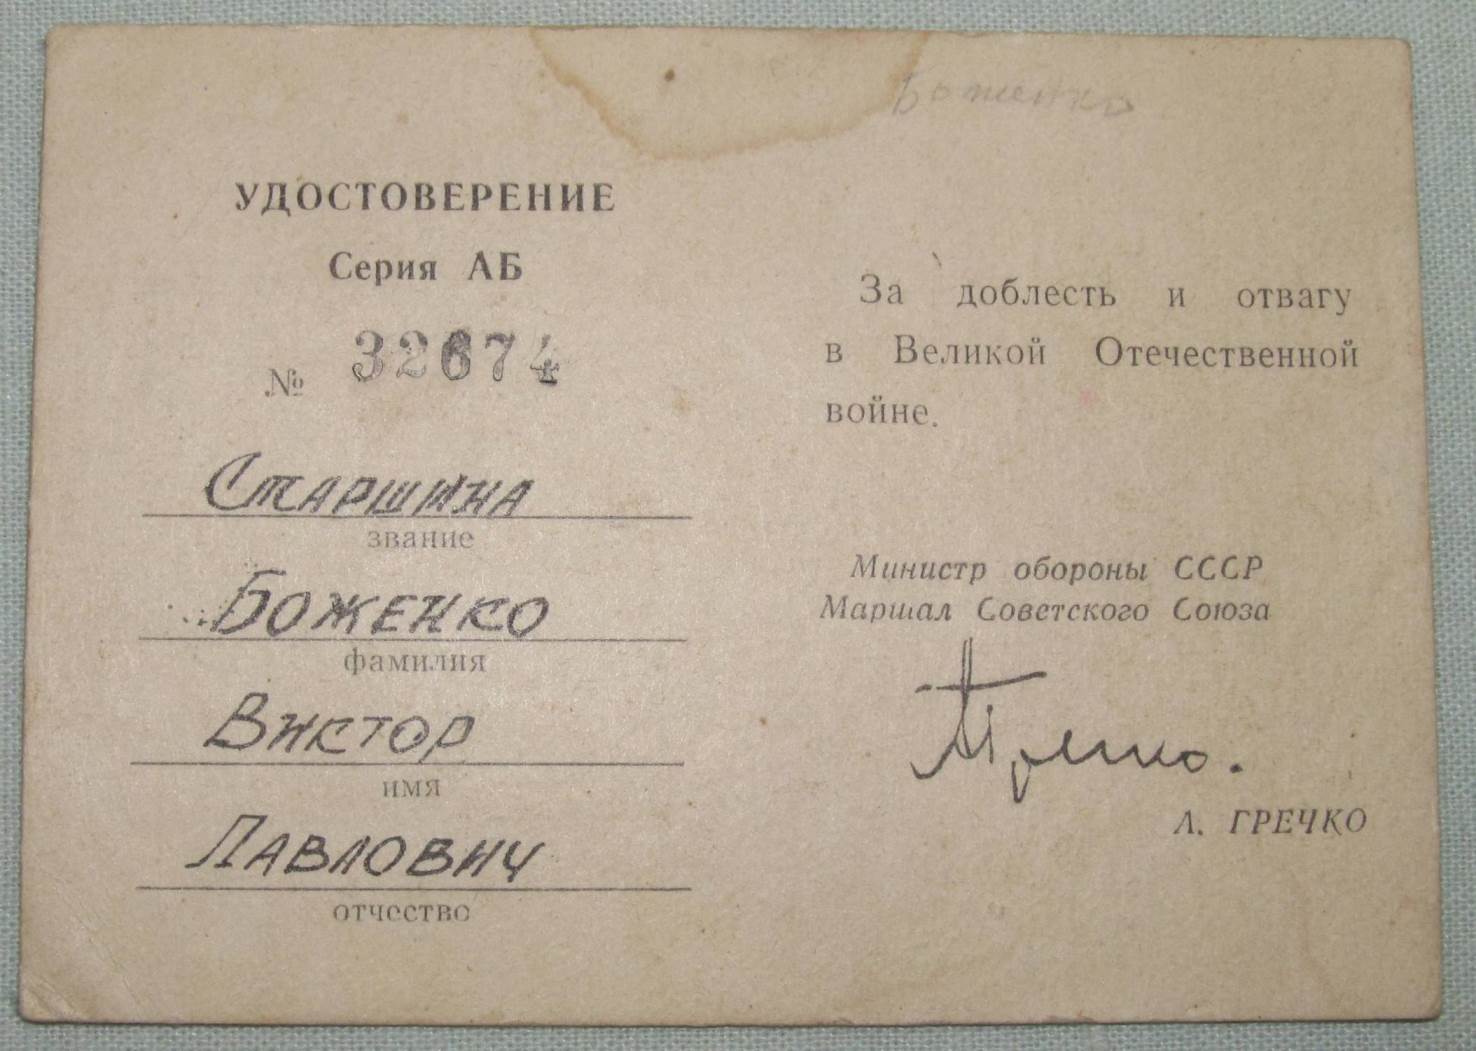 Боженко
УДОСТОВЕРЕНИЕ
Серия АБ
№ 32674
Старшина
звание
Боженко
фамилия
Виктор
имя
Павлович
отчество
За доблесть и отвагу
в Великой Отечественной
войне.
Министр обороны СССР
Маршал Советского Союза
А. ГРЕЧКО